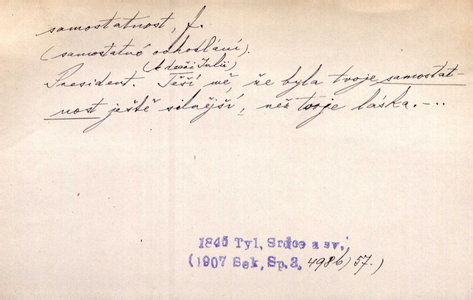 samostatnost, f.
(samostatné odhodlání).
(k dceři Julii)
President. Těší mě, že byla tvoje samostat-
nost ještě silnější, než tvoje láska. – ..
1845 Tyl, Srdce a sv.,
(1907 Sek, Sp. 3, 4986) 57.)